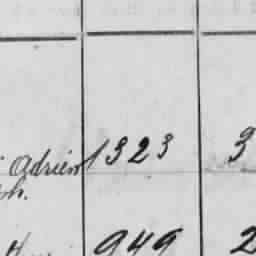 Adrien 1323 3
ph.
949 2